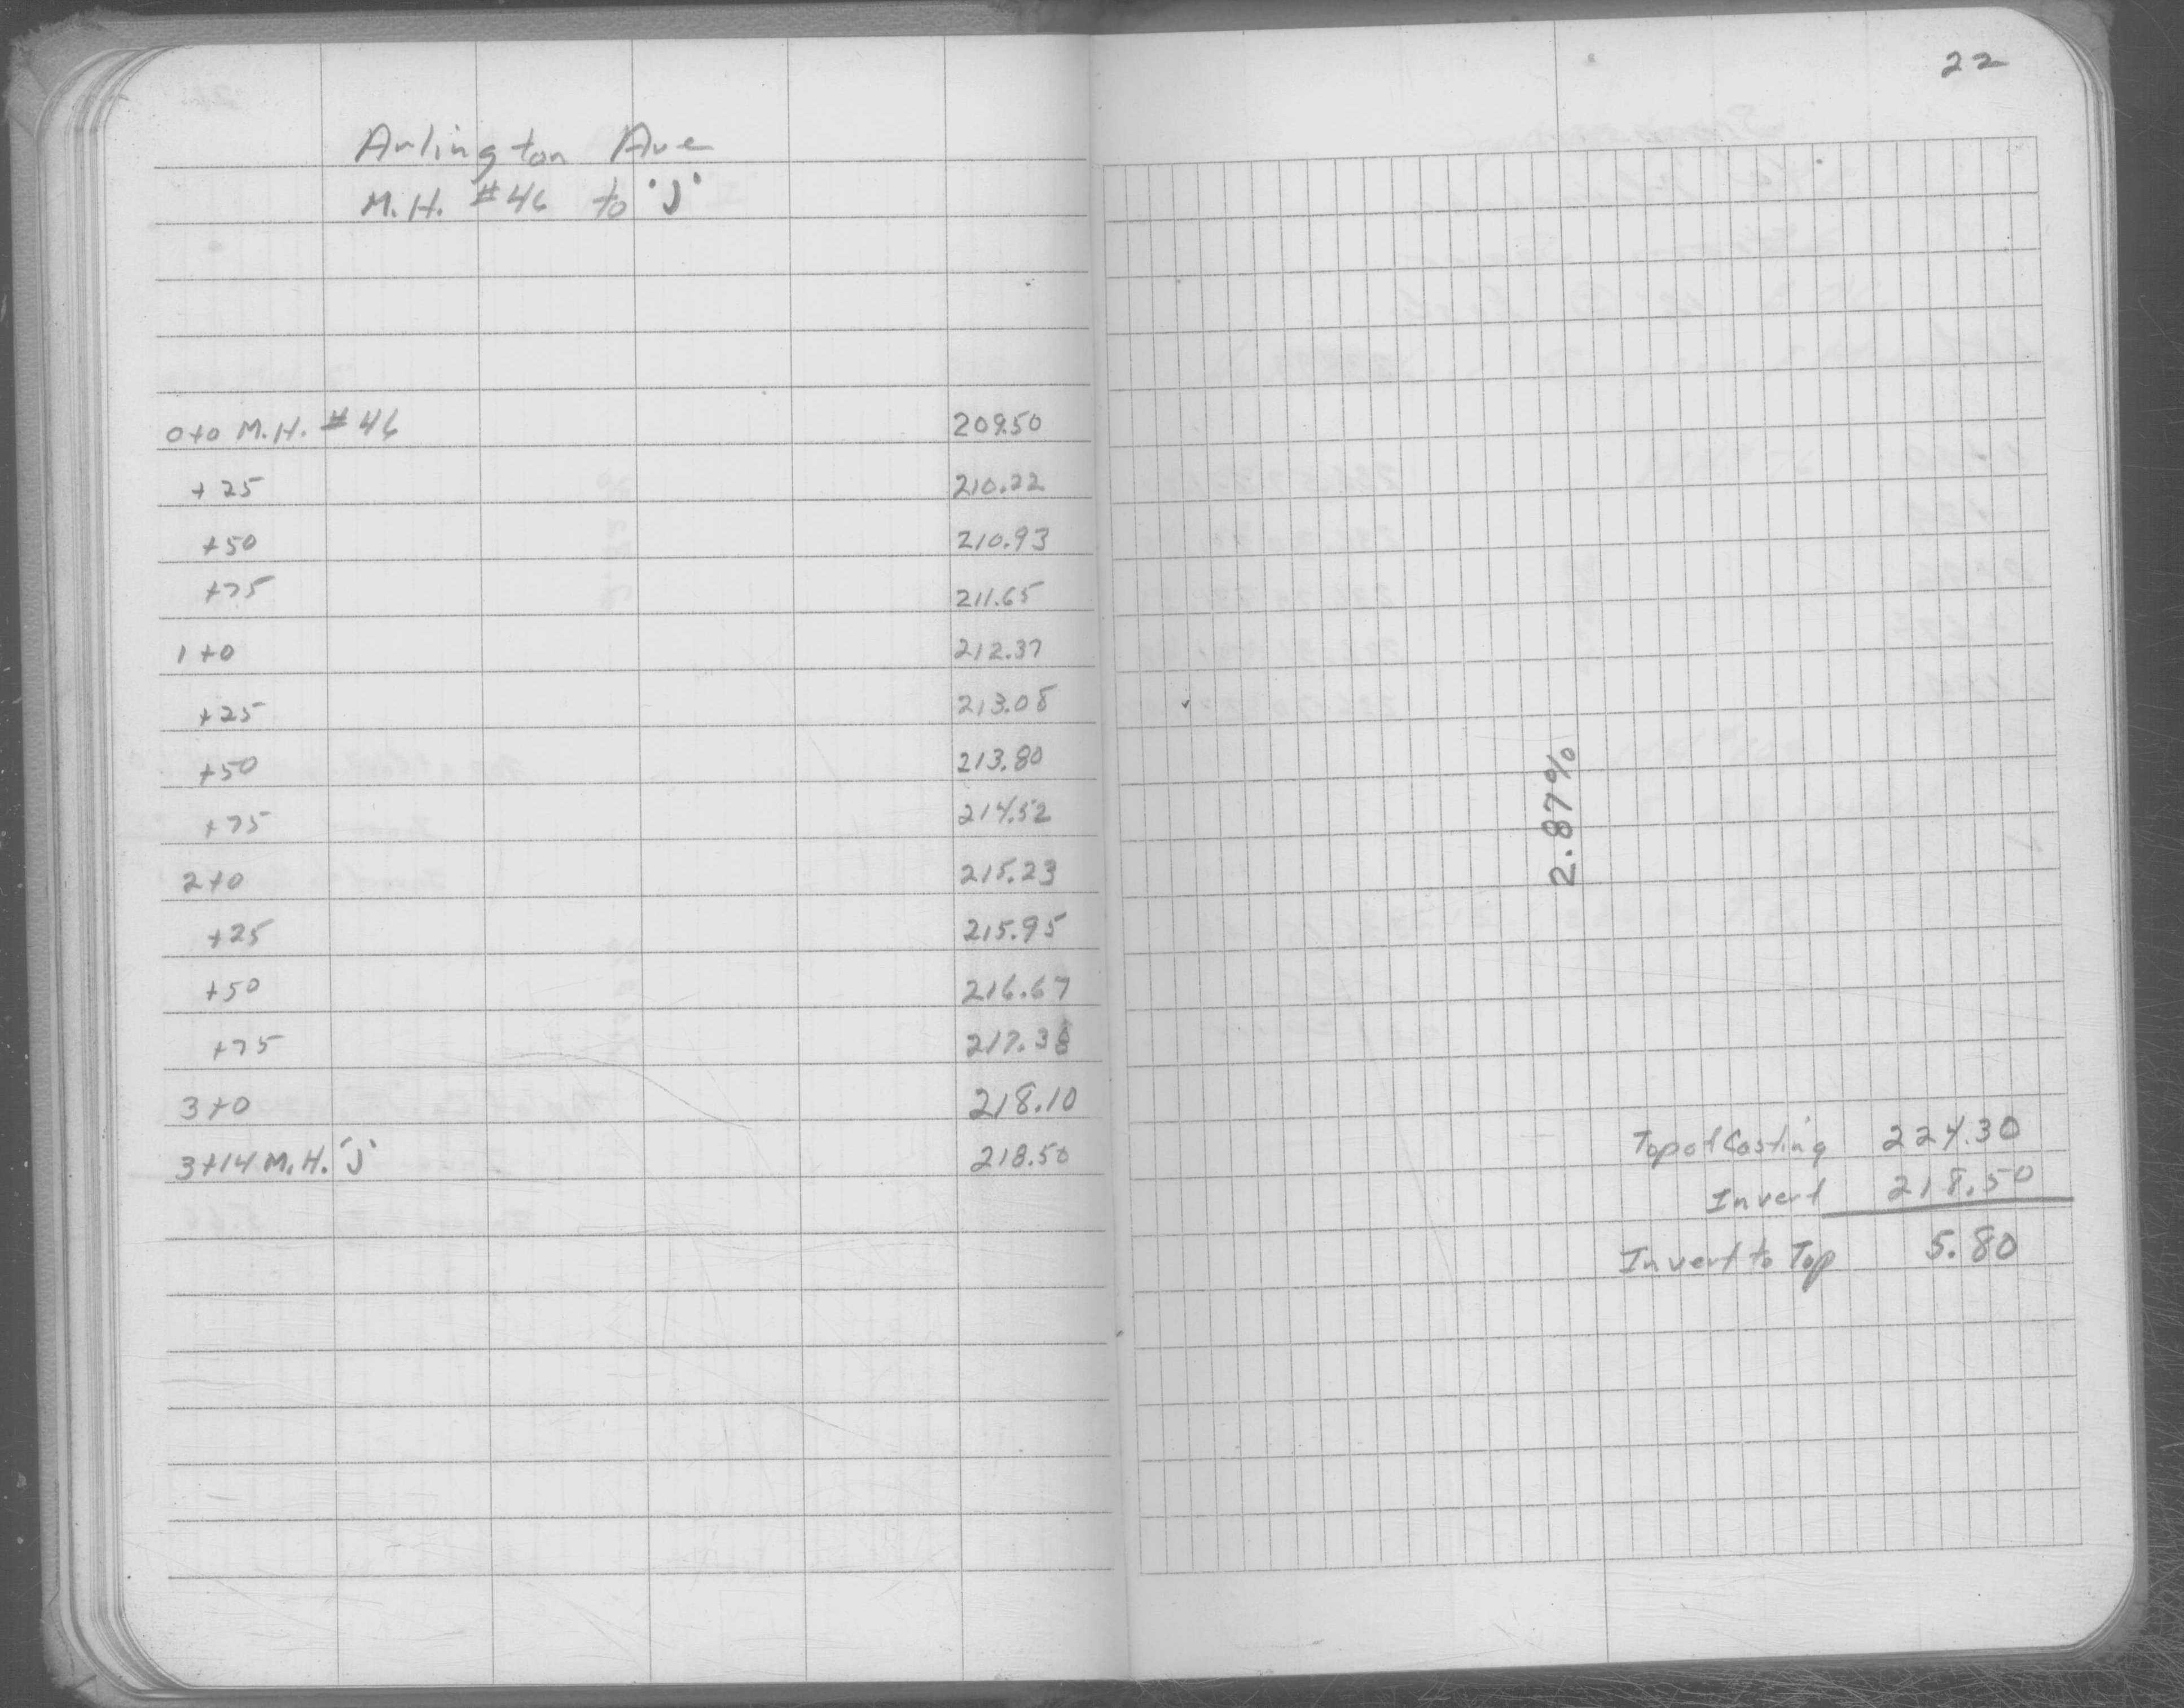 22
Arlington Ave
M.H. #46 to "J"
0+0 M.H. #46 209.50
+25 210.22
+50 210.93
+75 211.65
1+0 212.37
+25 213.08
+50 213.80
+75 214.52
2+0 215.23
+25 215.95
+50 216.67
+75 217.38
3+0 218.10
3+14 M.H. "J" 218.50
2.87%
Top of Casting 224.30
Invert 218.50
Invert to Top 5.80